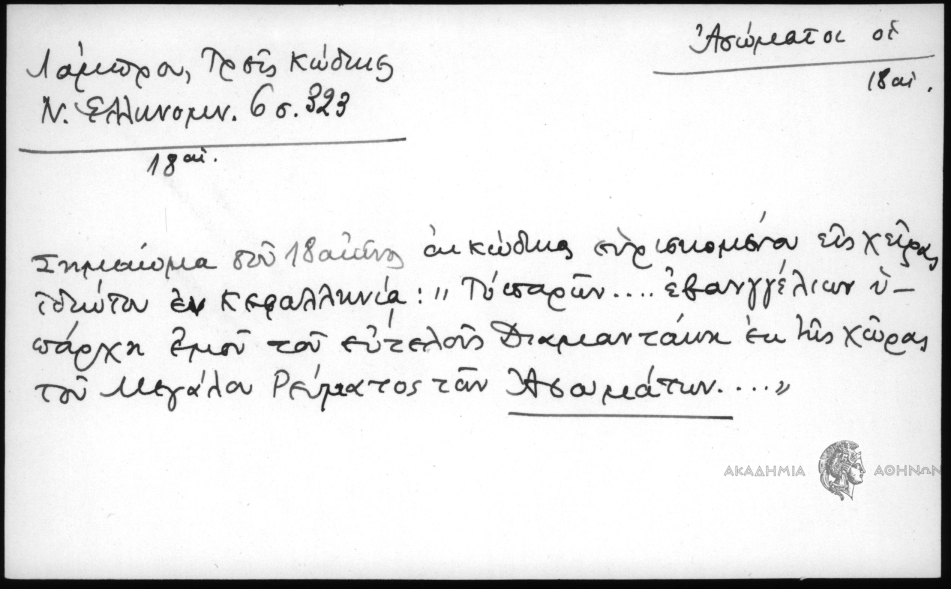 Ἀσώματοι οἱ
18 αἰ.
Λάμπρου, Τρεῖς κώδικες
Ν. Ἑλληνομν. 6 σ. 323
18 αἰ.
Σημείωμα τοῦ 18 αἰῶνος ἐκ κώδικος εὑρισκομένου εἰς χεῖρας
ἰδιώτου ἐν Κεφαλληνίᾳ: „ Τὸ παρῶν .... ἐβανγγέλιων ὑ-
πάρχη ἐμοῦ τοῦ εὐτελοῦς Διαμαντάκη ἐκ τῆς χώρας
τοῦ Μεγάλου Ρεύματος τῶν Ἀσωμάτων .... „
ΑΚΑΔΗΜΙΑ ΑΘΗΝΩΝ